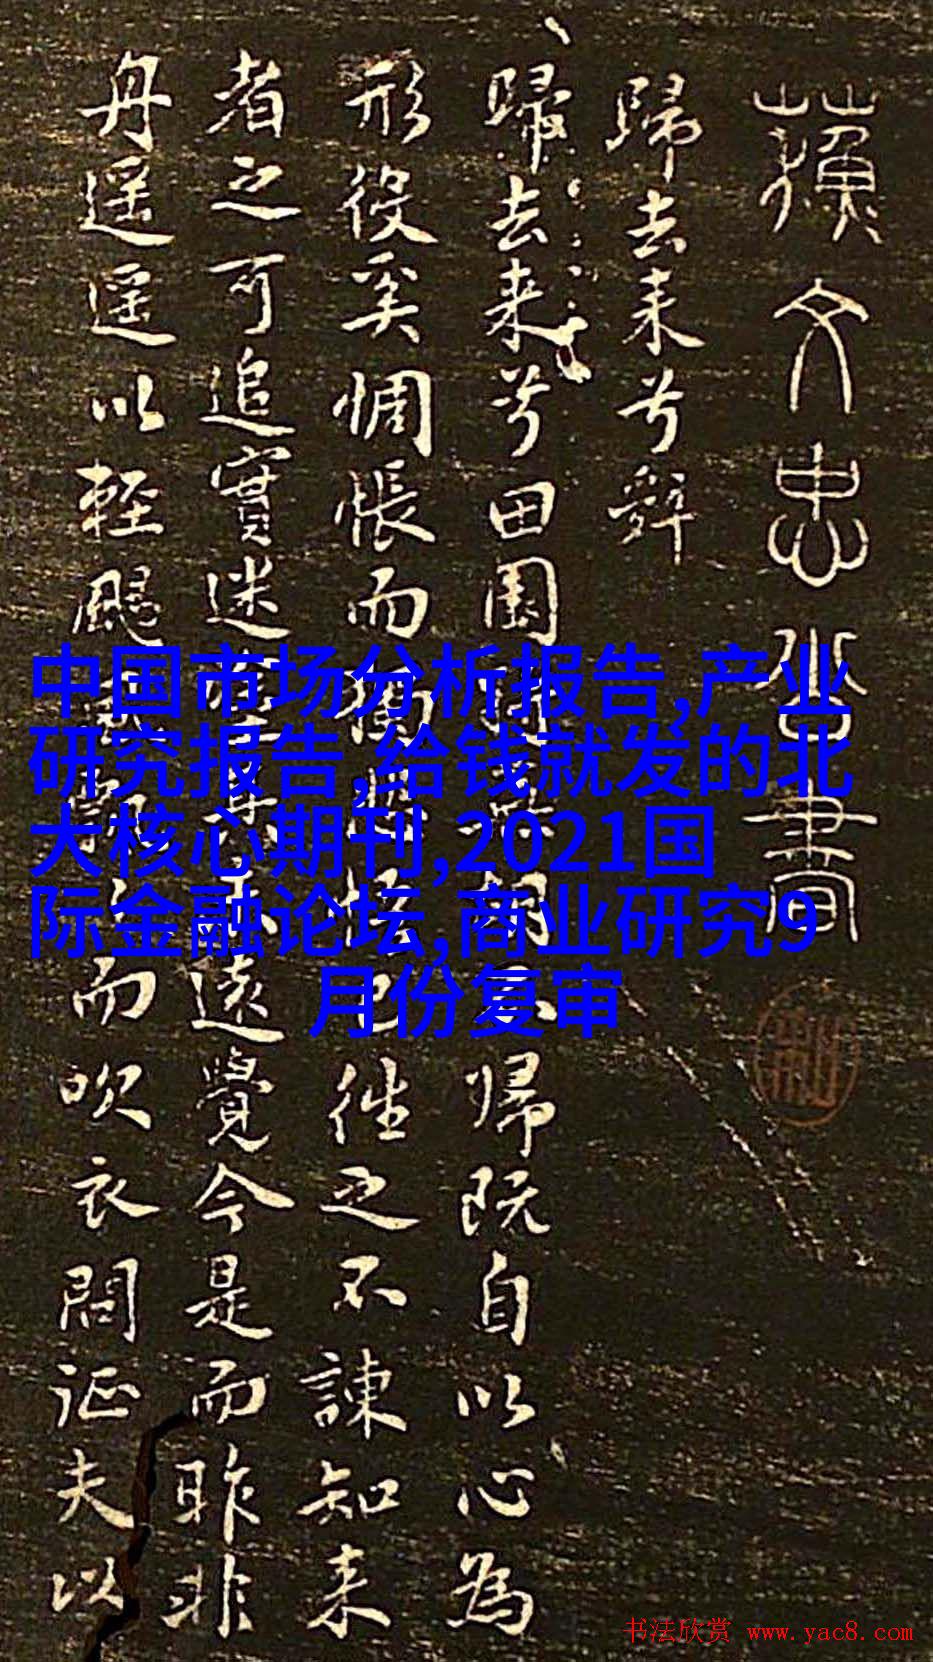 蘓文忠公書
歸去来兮辭
歸去来兮田園將蕪胡不帰既自以心為
形役奚惆悵而獨悲悟已往之不諫知来
者之可追實迷途其未遠覺今是而昨非
舟遥遥以輕颺而吹衣問征夫以
中国市场分析报告,产业
研究报告,给钱就发的北
大核心期刊,2021国
际金融论坛,商业研究9
月份复审
书法欣赏 www.yac8.com